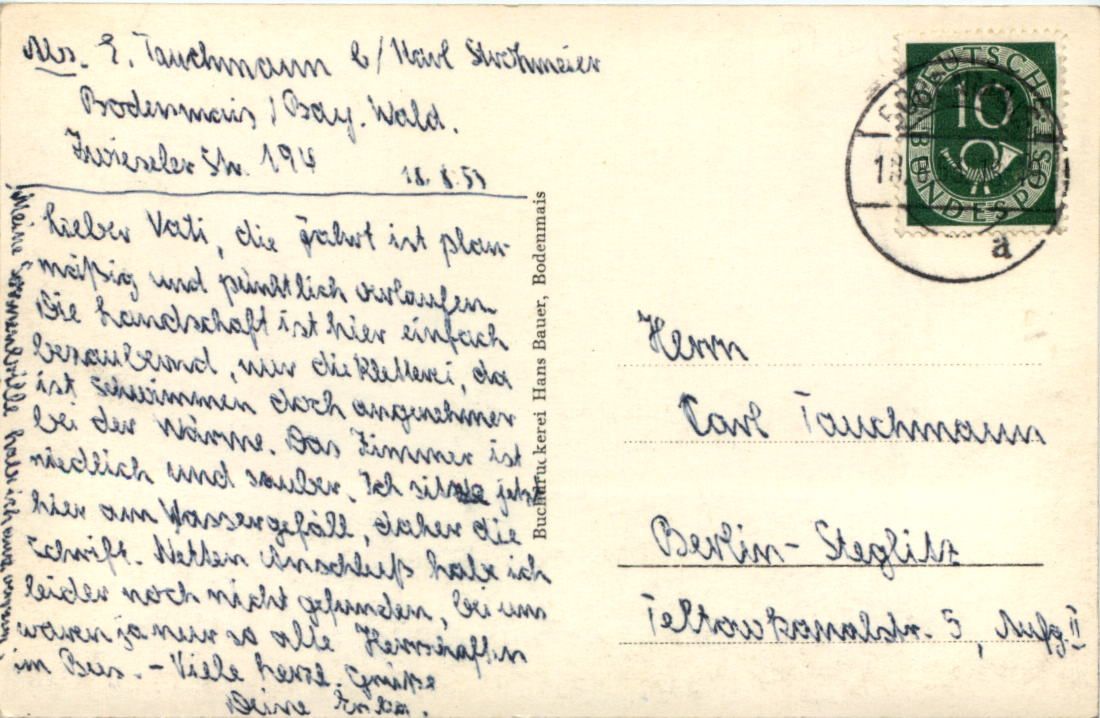 Abs. E. Tauchmann b/Karl Strohmeier
Bodenmais / Bay. Wald.
Zwieseler Str. 194
18. 8. 53
Lieber Vati, die Fahrt ist plan-
mäßig und pünktlich verlaufen.
Die Landschaft ist hier einfach
bezaubernd, nur die Kletterei, da
ist Schwimmen doch angenehmer
bei der Wärme. Das Zimmer ist
niedlich und sauber. Ich sitze jetzt
hier am Wassergefäll, daher die
Schrift. Netten Anschluß habe ich
leider noch nicht gefunden, bei uns
waren ja nur so alte Herrschaften
im Bus. – Viele herzl. Grüße
Deine
Meine Sonnenbrille hatte ich
Buchdruckerei Hans Bauer, Bodenmais
DEUTSCHE
BUNDESPOST
10
a
Herrn
Carl Tauchmann
Berlin-Steglitz
Teltowkanalstr. 5, Aufg. II